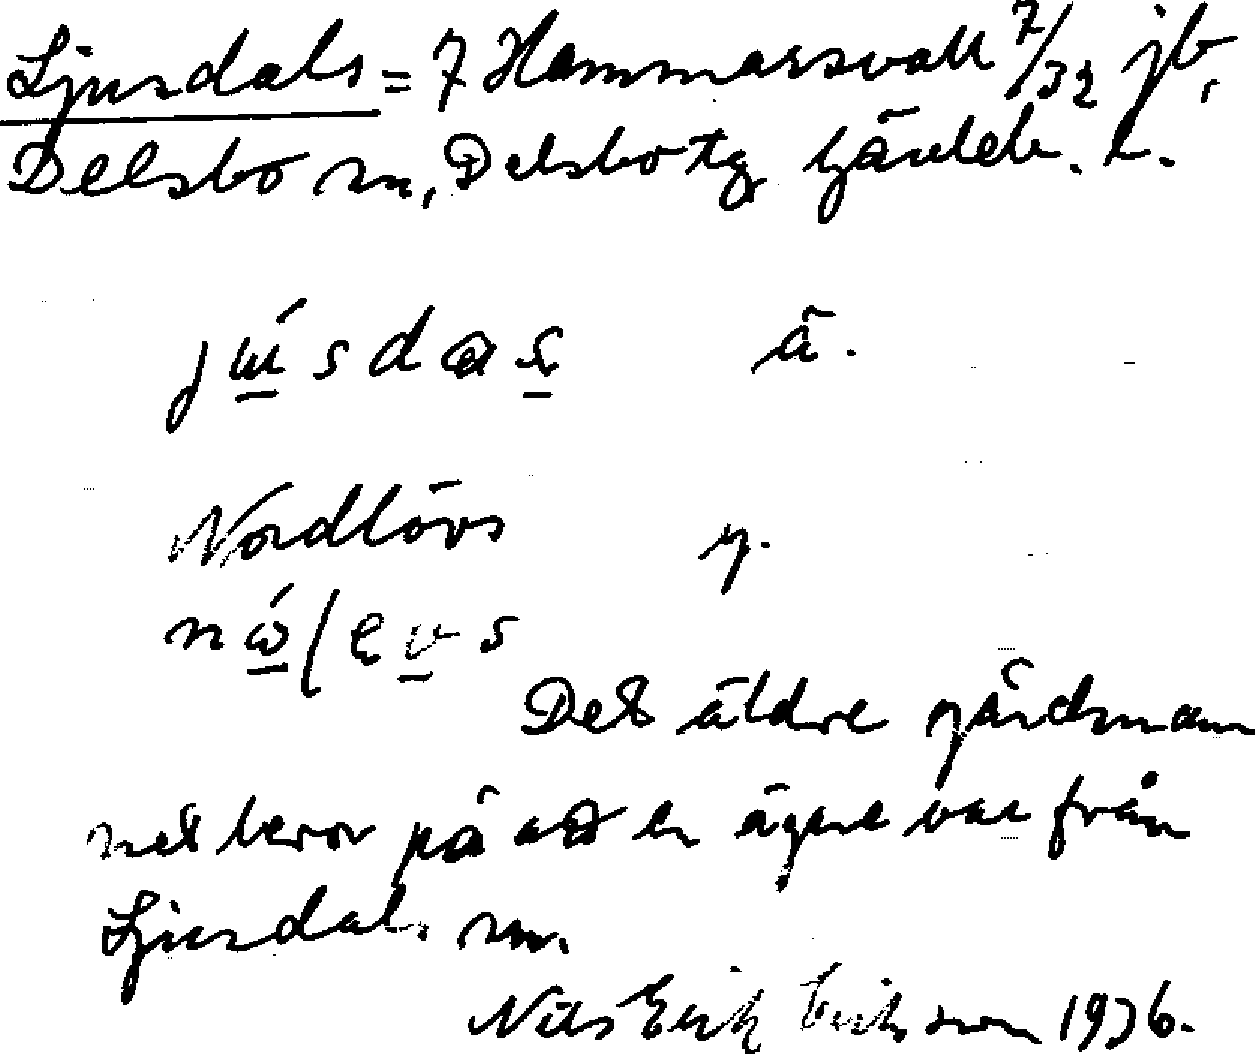 Ljusdals = 7 Hammarsvall 7/32 jb,
Delsbo sn, Delsbo tg Gävleb. l.
jɯ́sdas ä.
Nordlövs y.
Det äldre gårdsnam
net beror på att en ägare var från
Ljusdal. sn.
Nils Erik Eriksson 1936.